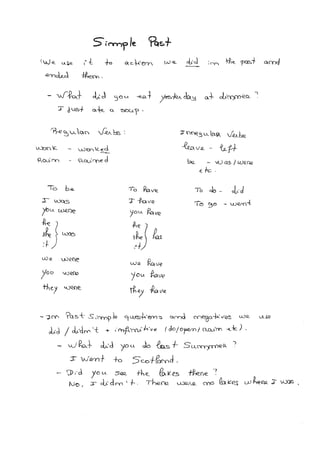 Simple Past
We use it to action we did in the past and
ended them.
- What did you eat yesterday at dinner?
I just ate a soup.
Regular Verbs: Irregular Verbs
work - worked leave - left
Rain - Rained be - was/were
etc.
To be To have To do - did
I was I have To go - went
you were you have
he he
she } was she } has
it it
we were we have
you were you have
they were they have
- In Past Simple questions and negatives we use
did / didn't + infinitive (do/open/rain etc).
- What did you do last Summer?
I went to Scotland.
- Did you see the lakes there?
No, I didn't. There were no lakes where I was.